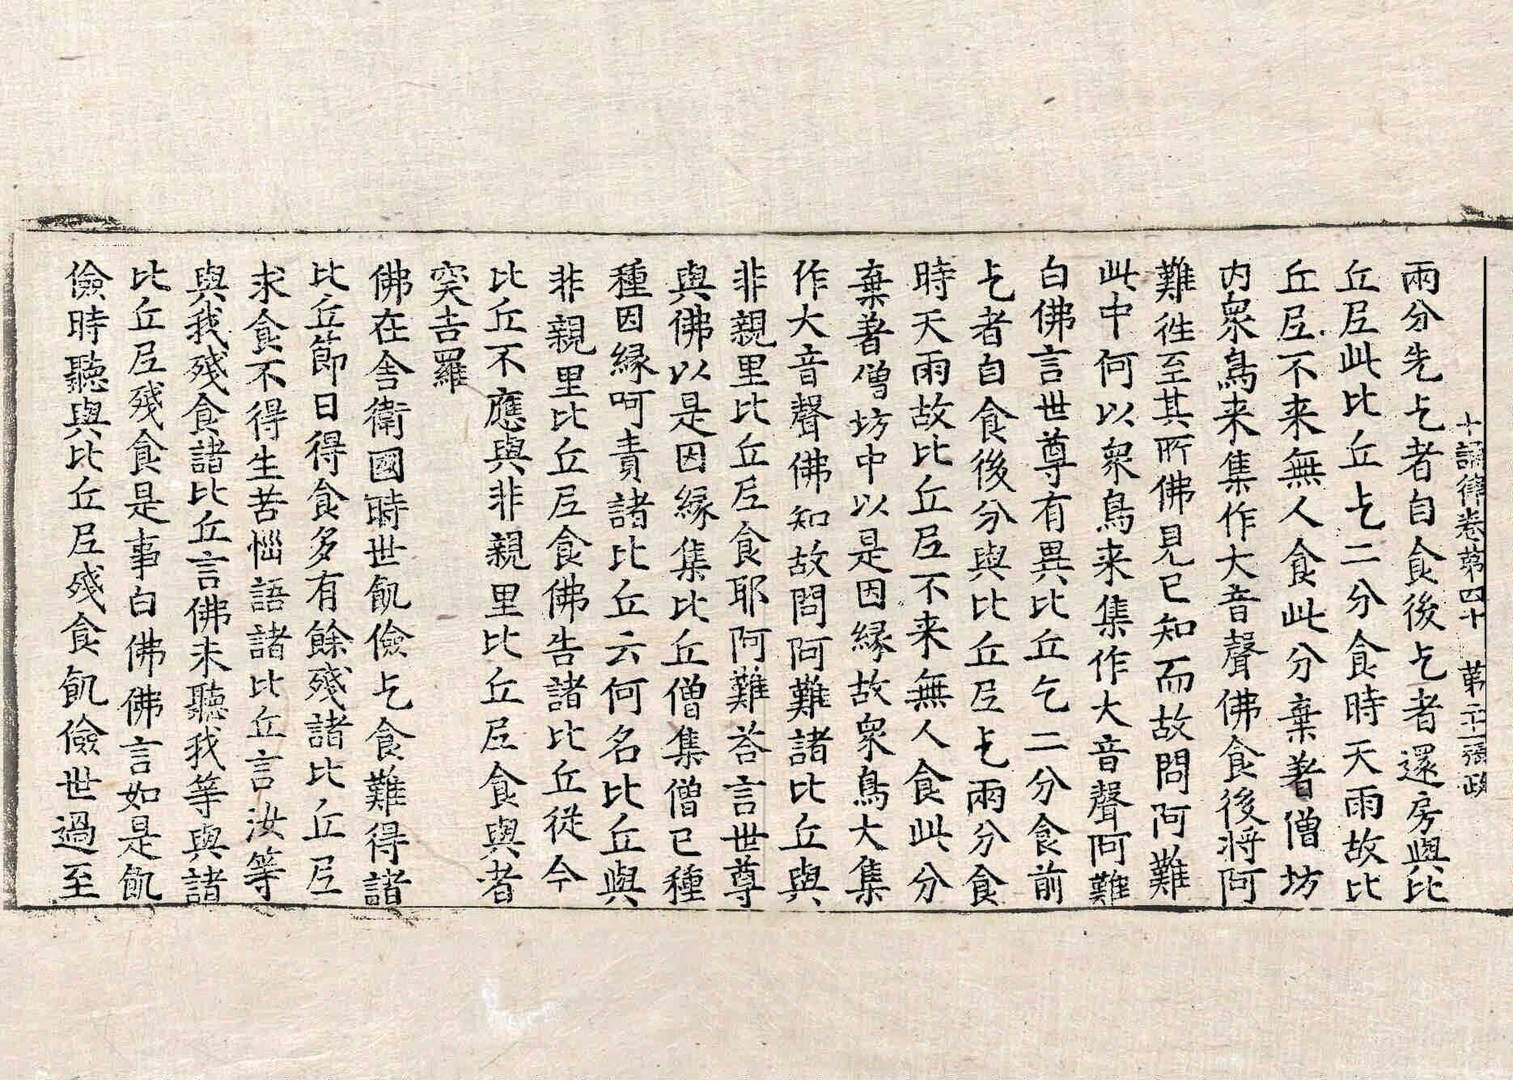 十誦律卷第四十 第二十一張 政
兩分先乞者自食後乞者還房與比
丘尼此比丘乞二分食時天雨故比
丘尼不来無人食此分棄著僧坊
内衆鳥来集作大音聲佛食後將阿
難徃至其所佛見已知而故問阿難
此中何以衆鳥来集作大音聲阿難
白佛言世尊有異比丘乞二分食前
乞者自食後分與比丘尼乞兩分食
時天雨故比丘尼不来無人食此分
棄著僧坊中以是因縁故衆鳥大集
作大音聲佛知故問阿難諸比丘與
非親里比丘尼食耶阿難荅言世尊
與佛以是因縁集比丘僧集僧已種
種因縁呵責諸比丘云何名比丘與
非親里比丘尼食佛告諸比丘從今
比丘不應與非親里比丘尼食與者
突吉羅
佛在舎衛國時世飢儉乞食難得諸
比丘節日得食多有餘殘諸比丘尼
求食不得生苦惱語諸比丘言汝等
與我殘食諸比丘言佛未聽我等與諸
比丘尼殘食是事白佛佛言如是飢
儉時聽與比丘尼殘食飢儉世過至